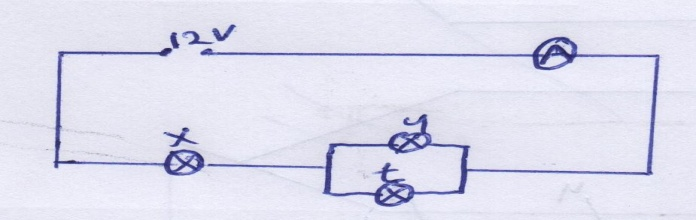 12V
A
x
y
t